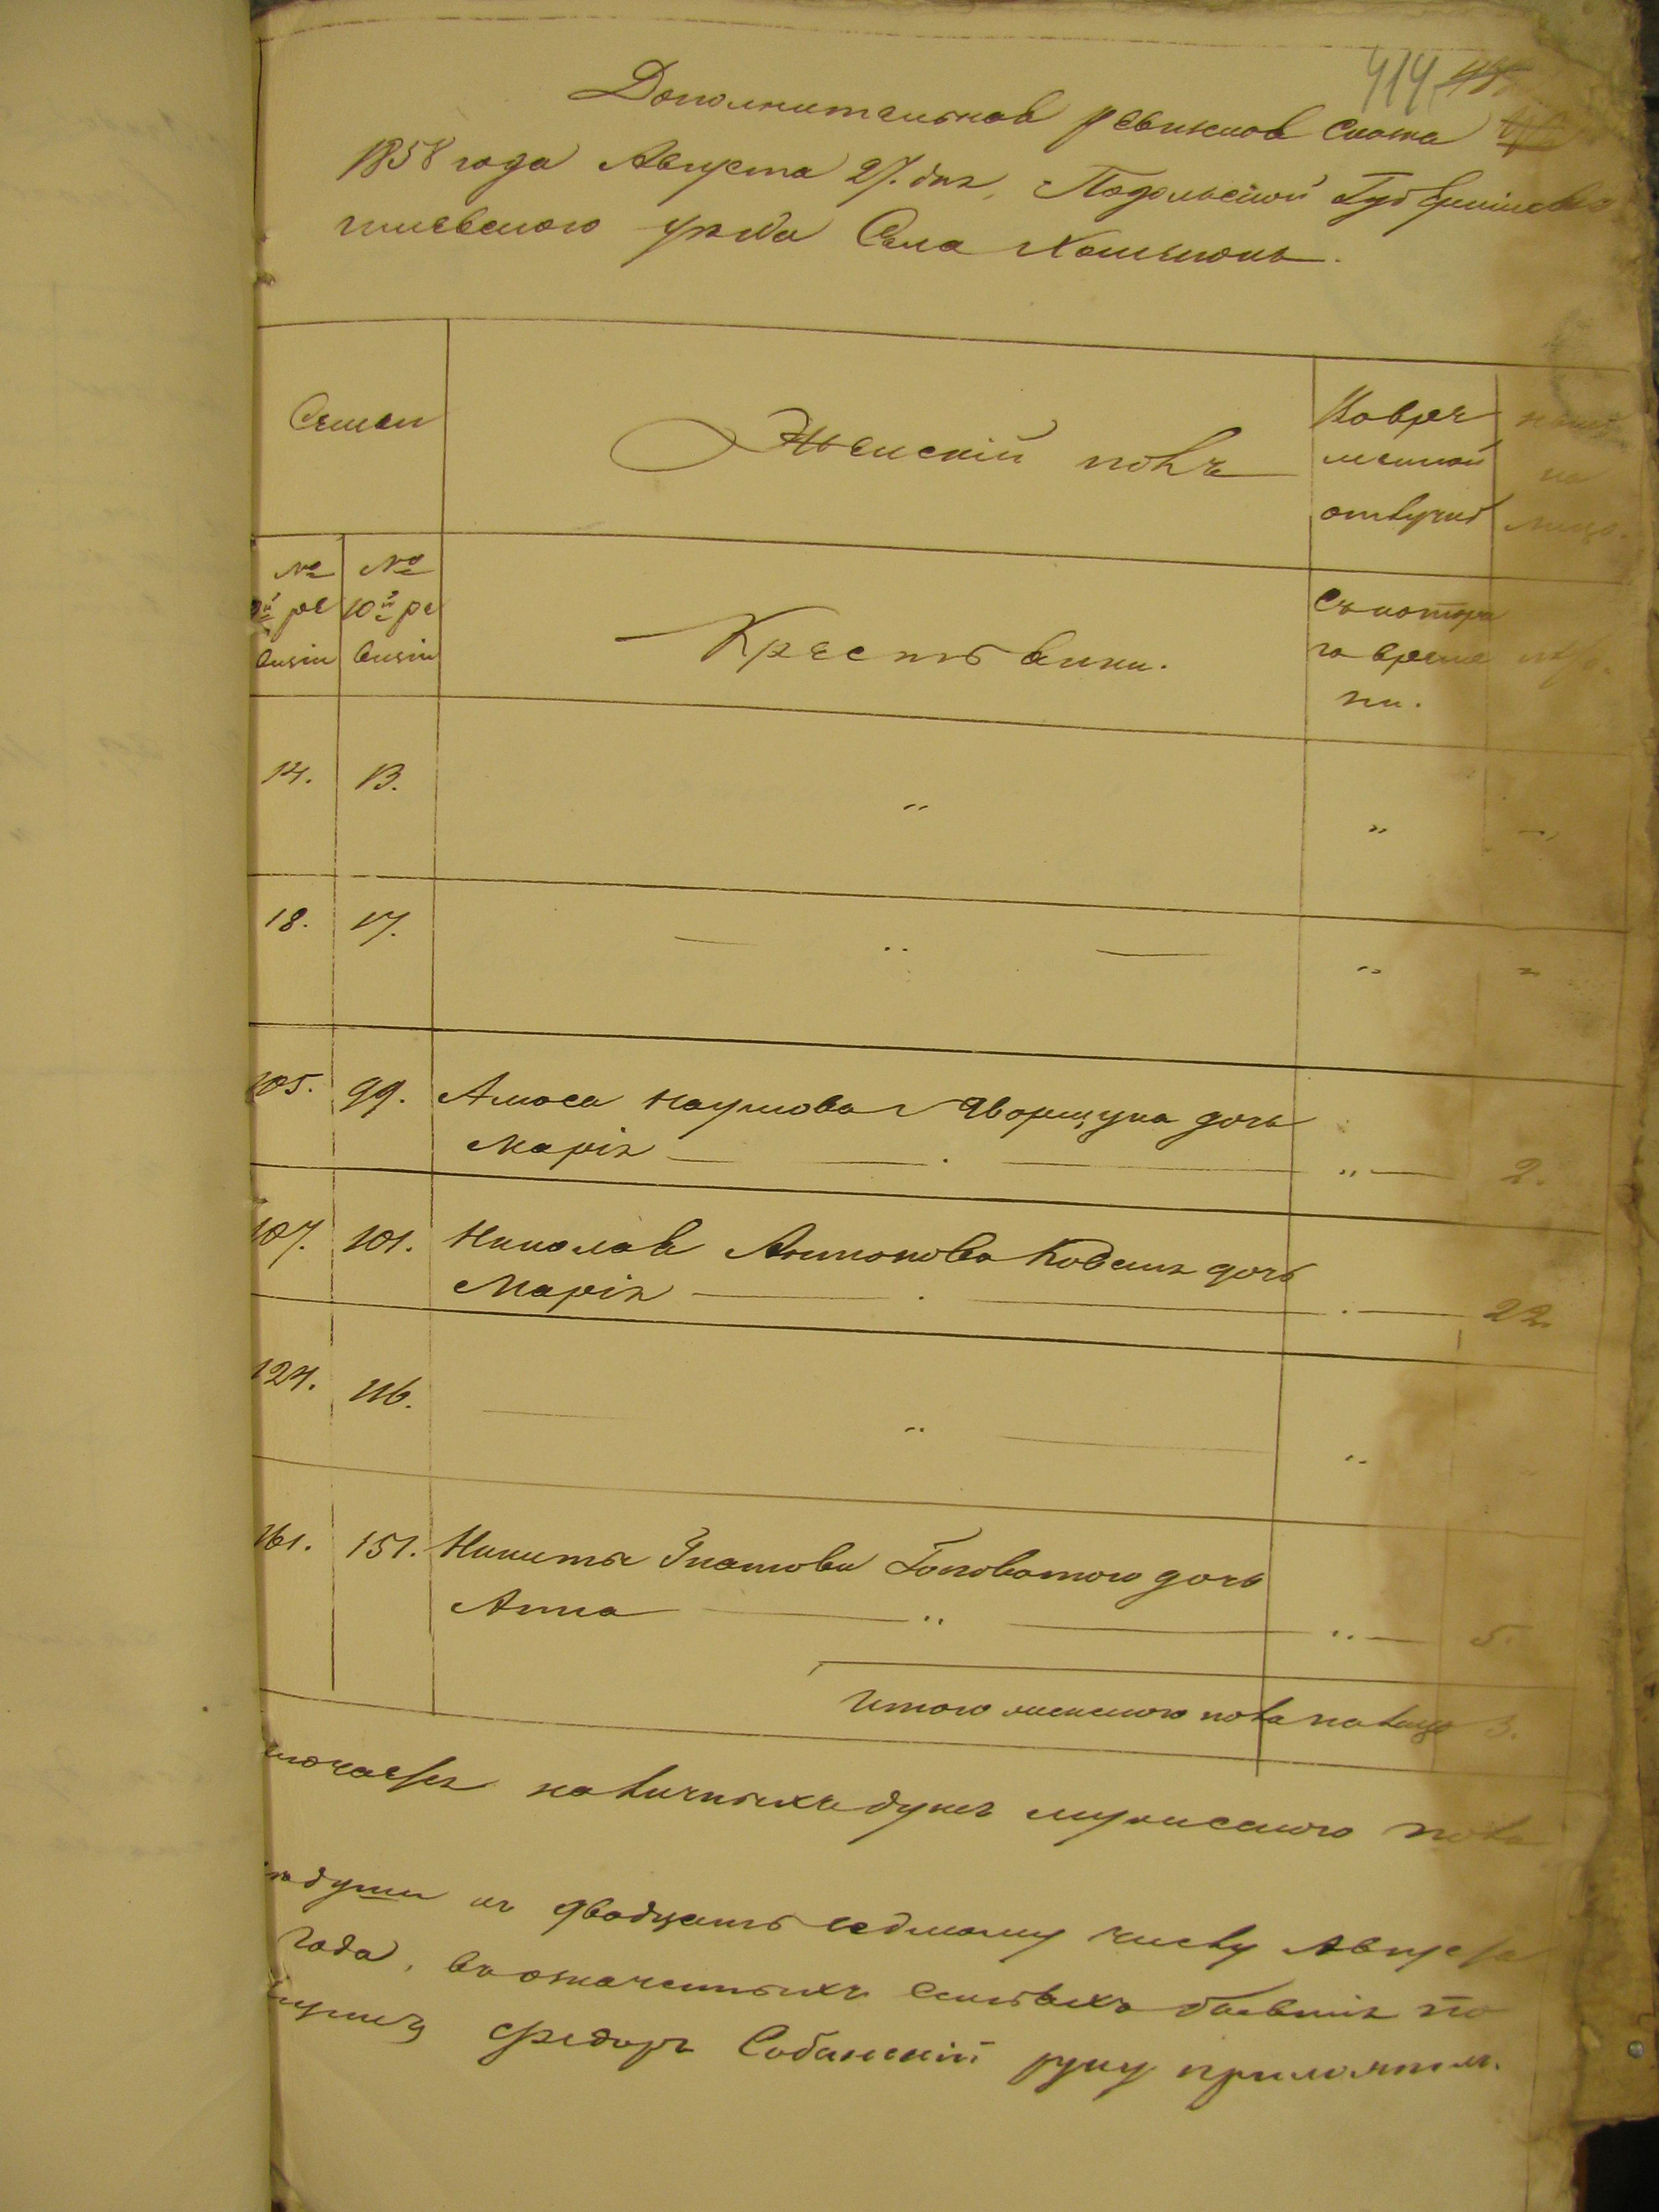 414
Дополнительная ревизская сказка
1858 года Августа 27. дня, Подольской Губерніи
гпиевского уѣзда Села
Семьи
Женскій полъ
Во вре
менной
отлучкѣ
нынѣ
на
лицо.
№
№
й ре
10й ре
визіи
визіи
Крестьянки.
Съ которо
го време
ни.
лѣта.
14. 13. "
" "
18. 17. — " —
" "
105. 99. Амоса Наумова Яворщука дочь
Марія — . — " — 2.
107. 101. Николая Антонова дочь
Марія — . — . — 22.
124. 116. — " — "
161. 151. Никиты Игнатова Головатого дочь
Анна — " — " — 5.
Итого женского пола на лицо 3.
наличныхъ душъ мужеского пола
души къ двадцать седмому числу Августа
года, въ означенныхъ семьяхъ бывшія по
Федоръ Собанскій руку приложилъ.